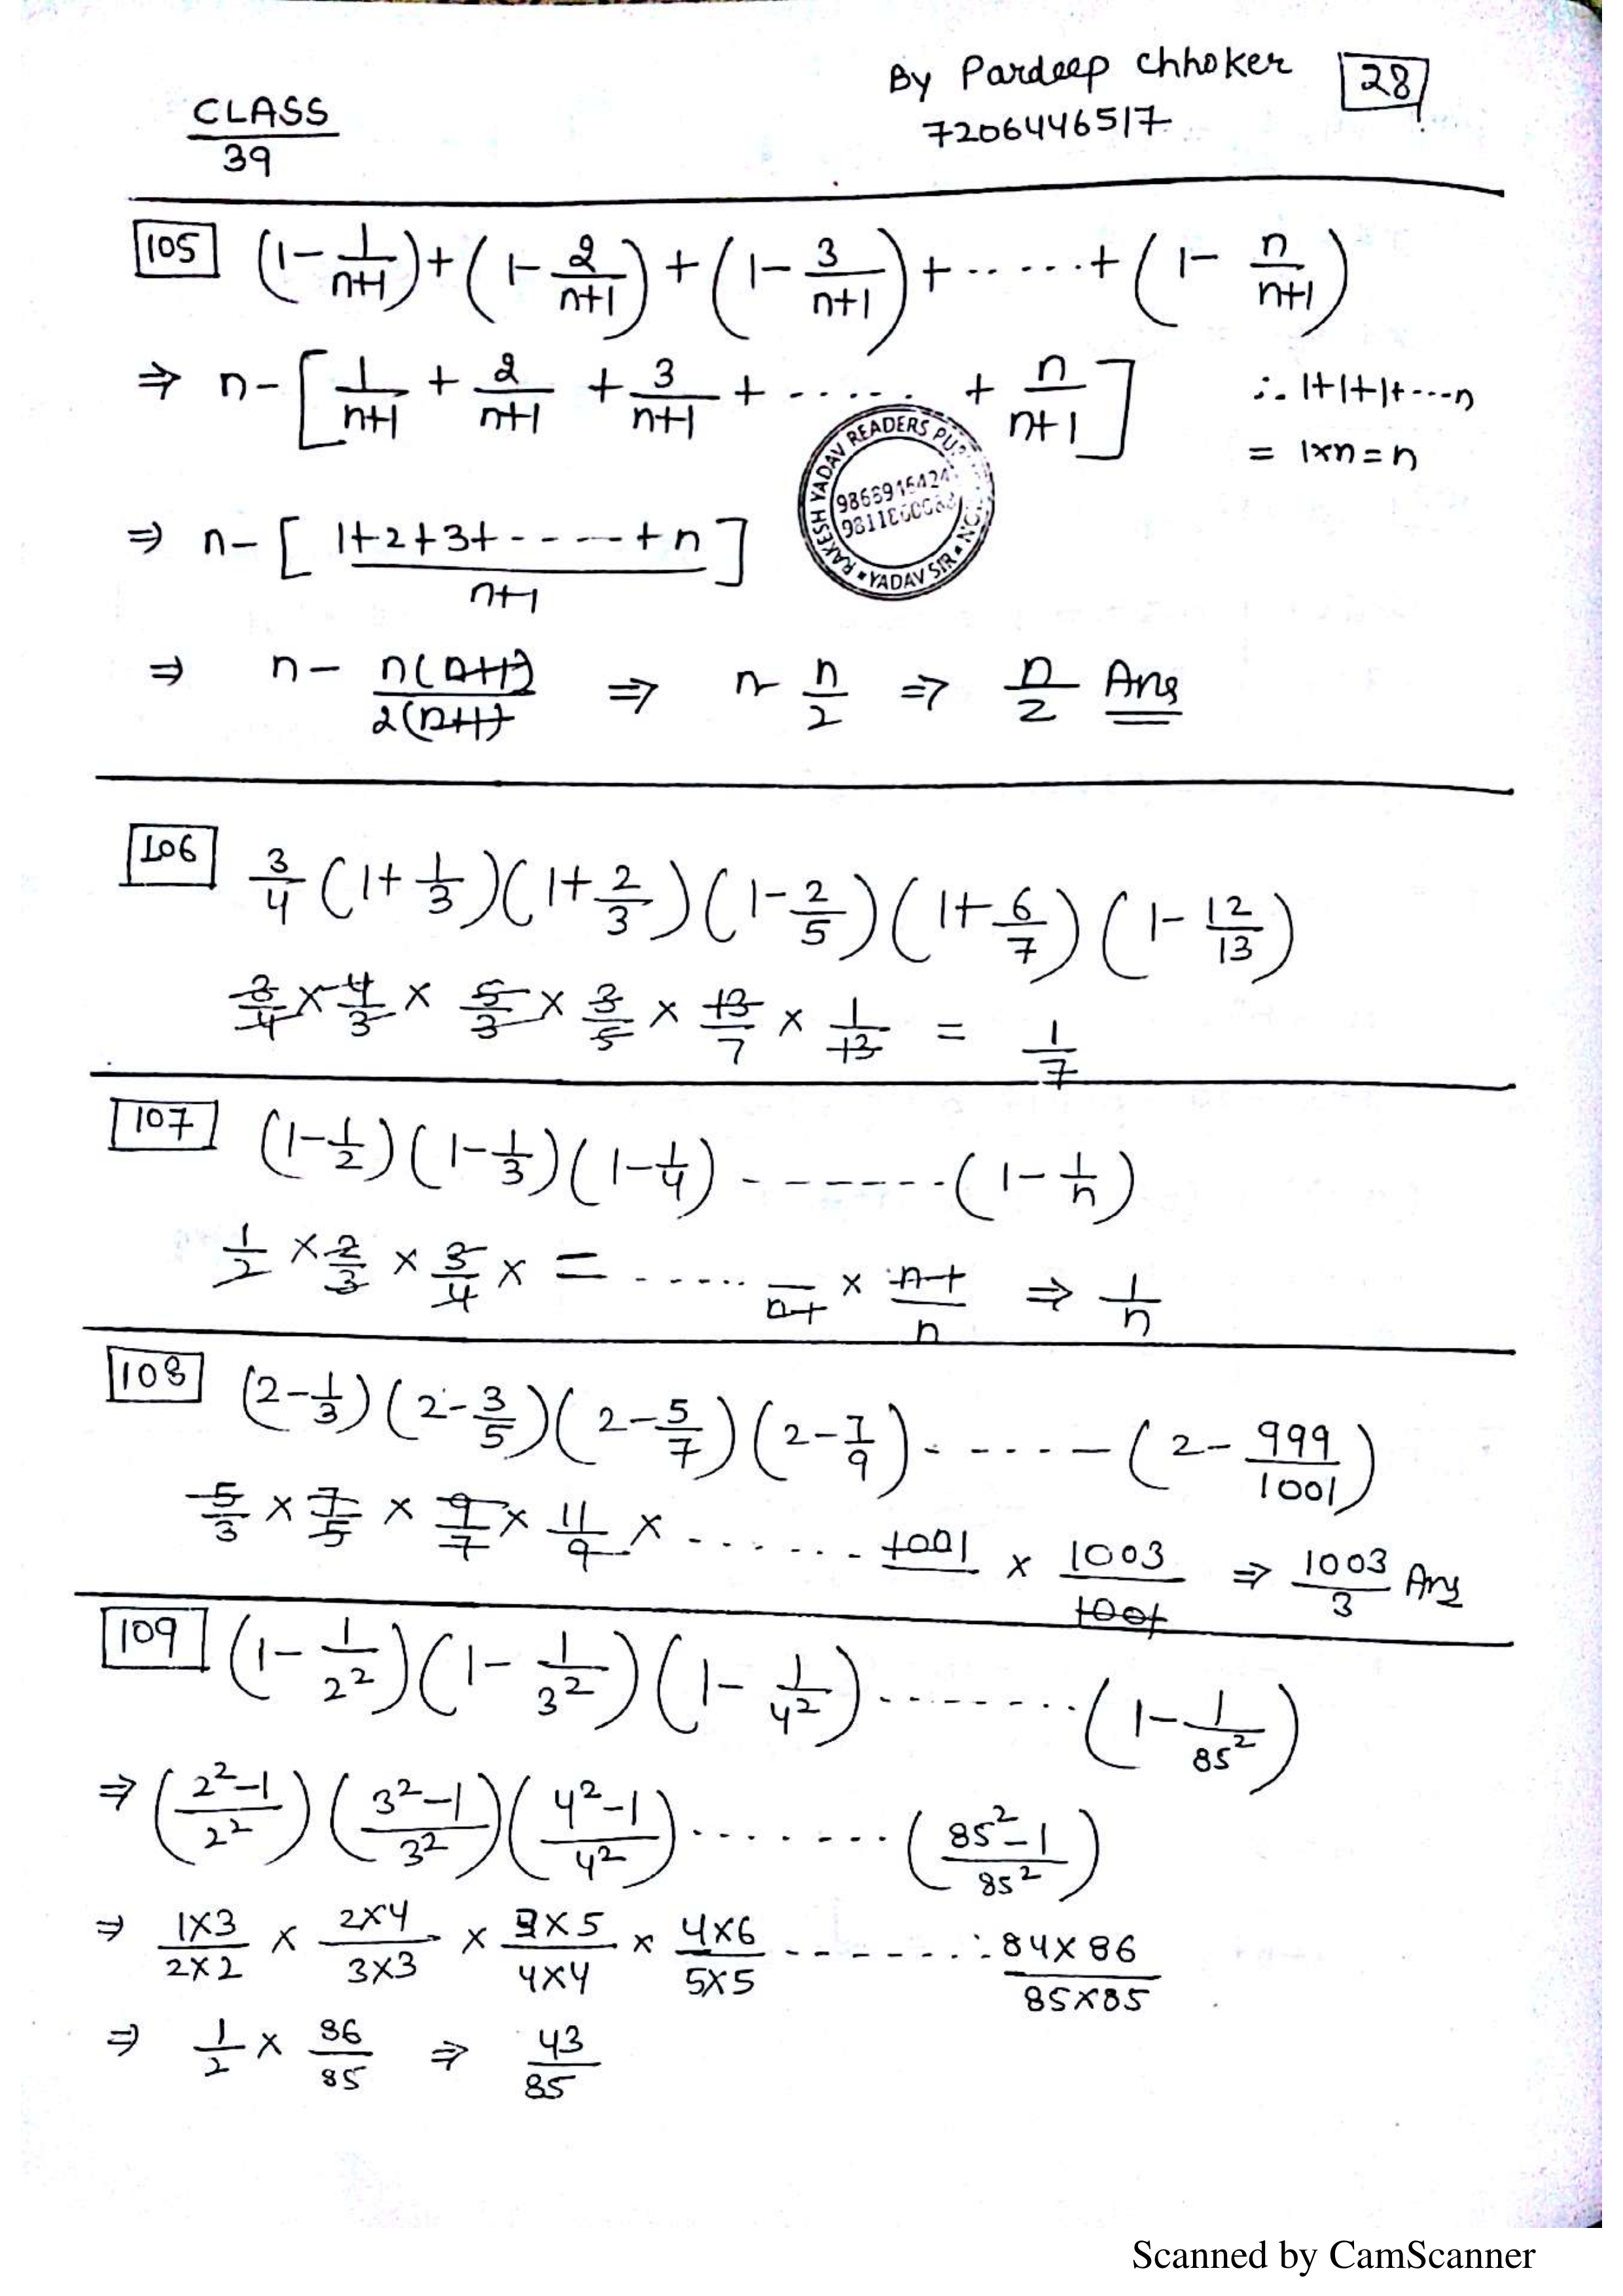 By Pardeep Chhoker 28
7206446517
CLASS
39
105 (1 - 1/(n+1)) + (1 - 2/(n+1)) + (1 - 3/(n+1)) + ...... + (1 - n/(n+1))
⇒ n - [1/(n+1) + 2/(n+1) + 3/(n+1) + ...... + n/(n+1)] ∴ 1+1+1+---n
= 1×n = n
RAKESH YADAV READERS
YADAV SIR
⇒ n - [(1+2+3+-----+n)/(n+1)]
⇒ n - n(n+1)/2(n+1) ⇒ n - n/2 ⇒ n/2 Ans
106 3/4 (1 + 1/3)(1 + 2/3)(1 - 2/5)(1 + 6/7)(1 - 12/13)
3/4 × 4/3 × 5/3 × 3/5 × 13/7 × 1/13 = 1/7
107 (1 - 1/2)(1 - 1/3)(1 - 1/4) ------- (1 - 1/n)
1/2 × 2/3 × 3/4 × = ...... —/(n-1) × (n-1)/n ⇒ 1/n
108 (2 - 1/3)(2 - 3/5)(2 - 5/7)(2 - 7/9) ------ (2 - 999/1001)
5/3 × 7/5 × 9/7 × 11/9 × ....... 1001/— × 1003/1001 ⇒ 1003/3 Ans
109 (1 - 1/2²)(1 - 1/3²)(1 - 1/4²) -------- (1 - 1/85²)
⇒ ((2²-1)/2²)((3²-1)/3²)((4²-1)/4²) ........ ((85²-1)/85²)
⇒ (1×3)/(2×2) × (2×4)/(3×3) × (3×5)/(4×4) × (4×6)/(5×5) ------- (84×86)/(85×85)
⇒ 1/2 × 86/85 ⇒ 43/85
Scanned by CamScanner